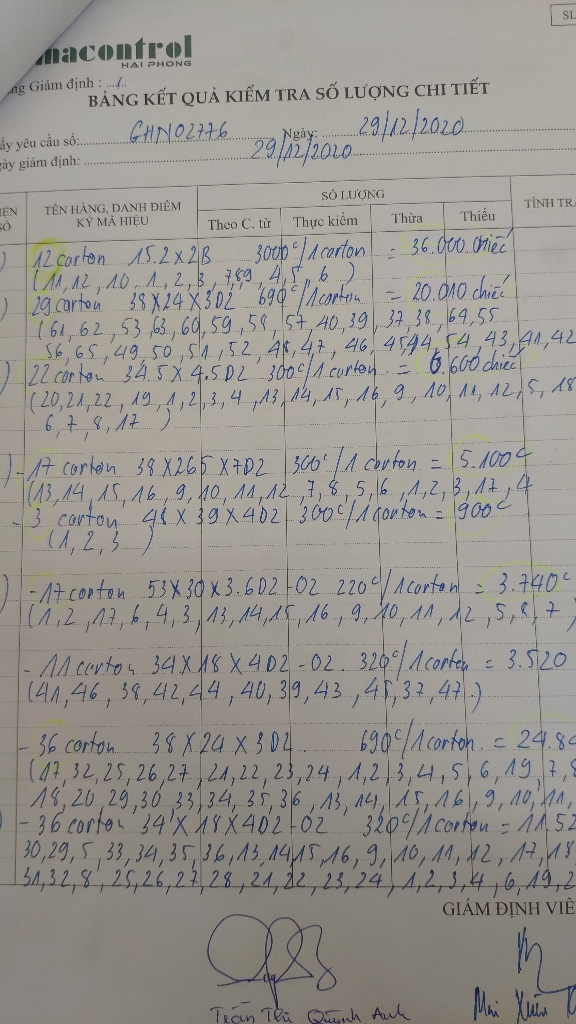 macontrol
HAI PHONG
SL
Giám định : .../..
BẢNG KẾT QUẢ KIỂM TRA SỐ LƯỢNG CHI TIẾT
yêu cầu số: GHN02776 Ngày: 29/12/2020
giám định: 29/12/2020
TÊN HÀNG, DANH ĐIỂM
KÝ MÃ HIỆU
SỐ LƯỢNG
Theo C. từ Thực kiểm Thừa Thiếu
12 carton 15.2 x 2B 3000c/1 carton = 36.000 chiếc
(11, 12, 10, 1, 2, 3, 7,8,9, 4, 5, 6)
29 carton 38X24X3D2 690c/1 carton = 20.010 chiếc
(61, 62, 53, 63, 60, 59, 58, 57, 40, 39, 37, 38, 64, 55
56, 65, 49, 50, 51, 52, 48, 47, 46, 45, 44, 54, 43, 41, 42
22 carton 34.5 X 4.5D2 300c/1 carton = 6.600 chiếc
(20, 21, 22, 19, 1, 2, 3, 4, 13, 14, 15, 16, 9, 10, 11, 12, 5, 18
6, 7, 8, 17)
- 17 carton 38X265X7D2 300c/1 carton = 5.100c
(13, 14, 15, 16, 9, 10, 11, 12, 7, 8, 5, 6, 1, 2, 3, 17, 4
- 3 carton 48 X 39 X 4D2 300c/1 carton = 900c
(1, 2, 3)
- 17 carton 53X30X3.6D2-02 220c/1 carton = 3.740c
(1, 2, 17, 6, 4, 3, 13, 14, 15, 16, 9, 10, 11, 12, 5, 8, 7)
- 11 carton 34X18X4D2-02. 320c/1 carton = 3.520
(41, 46, 38, 42, 44, 40, 39, 43, 45, 37, 47.)
- 36 carton 38X24X3D2 690c/1 carton. = 24.84
(17, 32, 25, 26, 27, 21, 22, 23, 24, 1, 2, 3, 4, 5, 6, 19, 7, 8
18, 20, 29, 30, 33, 34, 35, 36, 13, 14, 15, 16, 9, 10, 11,
- 36 carton 34X18X4D2-02 320c/1 carton = 11.52
30, 29, 5, 33, 34, 35, 36, 13, 14, 15, 16, 9, 10, 11, 12, 17, 18
31, 32, 8, 25, 26, 27, 28, 21, 22, 23, 24, 1, 2, 3, 4, 6, 19, 2
GIÁM ĐỊNH VIÊ
Trần Thị Quỳnh Anh
Mai Xuân